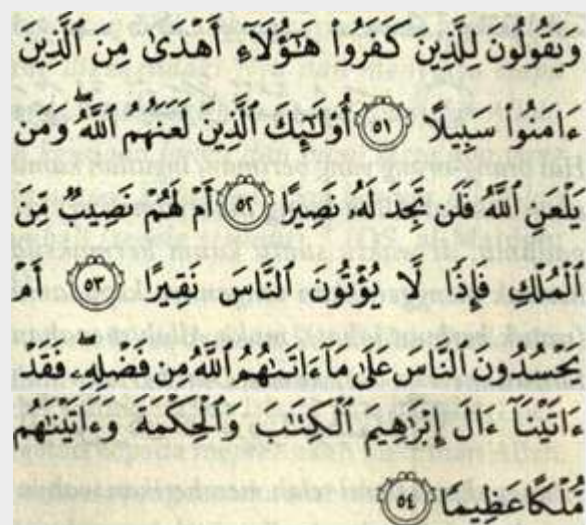 وَيَقُولُونَ لِلَّذِينَ كَفَرُوا۟ هَـٰٓؤُلَآءِ أَهْدَىٰ مِنَ ٱلَّذِينَ
ءَامَنُوا۟ سَبِيلًا ٥١ أُو۟لَـٰٓئِكَ ٱلَّذِينَ لَعَنَهُمُ ٱللَّهُ ۖ وَمَن
يَلْعَنِ ٱللَّهُ فَلَن تَجِدَ لَهُۥ نَصِيرًا ٥٢ أَمْ لَهُمْ نَصِيبٌ مِّنَ
ٱلْمُلْكِ فَإِذًا لَّا يُؤْتُونَ ٱلنَّاسَ نَقِيرًا ٥٣ أَمْ
يَحْسُدُونَ ٱلنَّاسَ عَلَىٰ مَآ ءَاتَىٰهُمُ ٱللَّهُ مِن فَضْلِهِۦ ۖ فَقَدْ
ءَاتَيْنَآ ءَالَ إِبْرَٰهِيمَ ٱلْكِتَـٰبَ وَٱلْحِكْمَةَ وَءَاتَيْنَـٰهُم
مُّلْكًا عَظِيمًا ٥٤